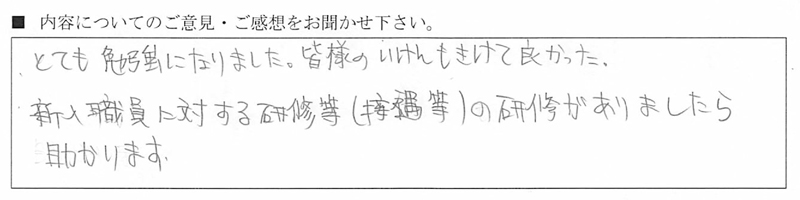 ■ 内容についてのご意見・ご感想をお聞かせ下さい。
とても勉強になりました。皆様のいけんもきけて良かった。
新人職員に対する研修等(接遇等)の研修がありましたら
助かります。